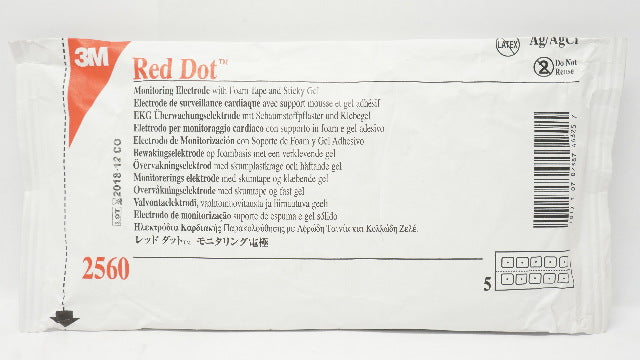 3M
Red Dot™
LATEX
Ag/AgCl
2
Do Not
Reuse
Monitoring Electrode with Foam Tape and Sticky Gel
Electrode de surveillance cardiaque avec support mousse et gel adhésif
EKG Überwachungselektrode mit Schaumstoffpflaster und Klebegel
Elettrodo per monitoraggio cardiaco con supporto in foam e gel adesivo
Electrodo de Monitorización con Soporte de Foam y Gel Adhesivo
Bewakingselektrode op foambasis met een verklevende gel
Övervakningselektrod med skumplastkrage och häftande gel
Monitorerings elektrode med skumtape og klæbende gel
Overvåkningselektrode med skumtape og fast gel
Valvontaelektrodi, vaahtomuovitausta ja liimautuva geeli
Electrodo de monitorização suporte de espuma e gel sólido
Ηλεκτρόδια Καρδιακής Παρακολούθησης με Αφρώδη Ταινία και Κολλώδη Ζελέ.
レッド ダット™ モニタリング電極
LOT 2018-12 CO
2560
5